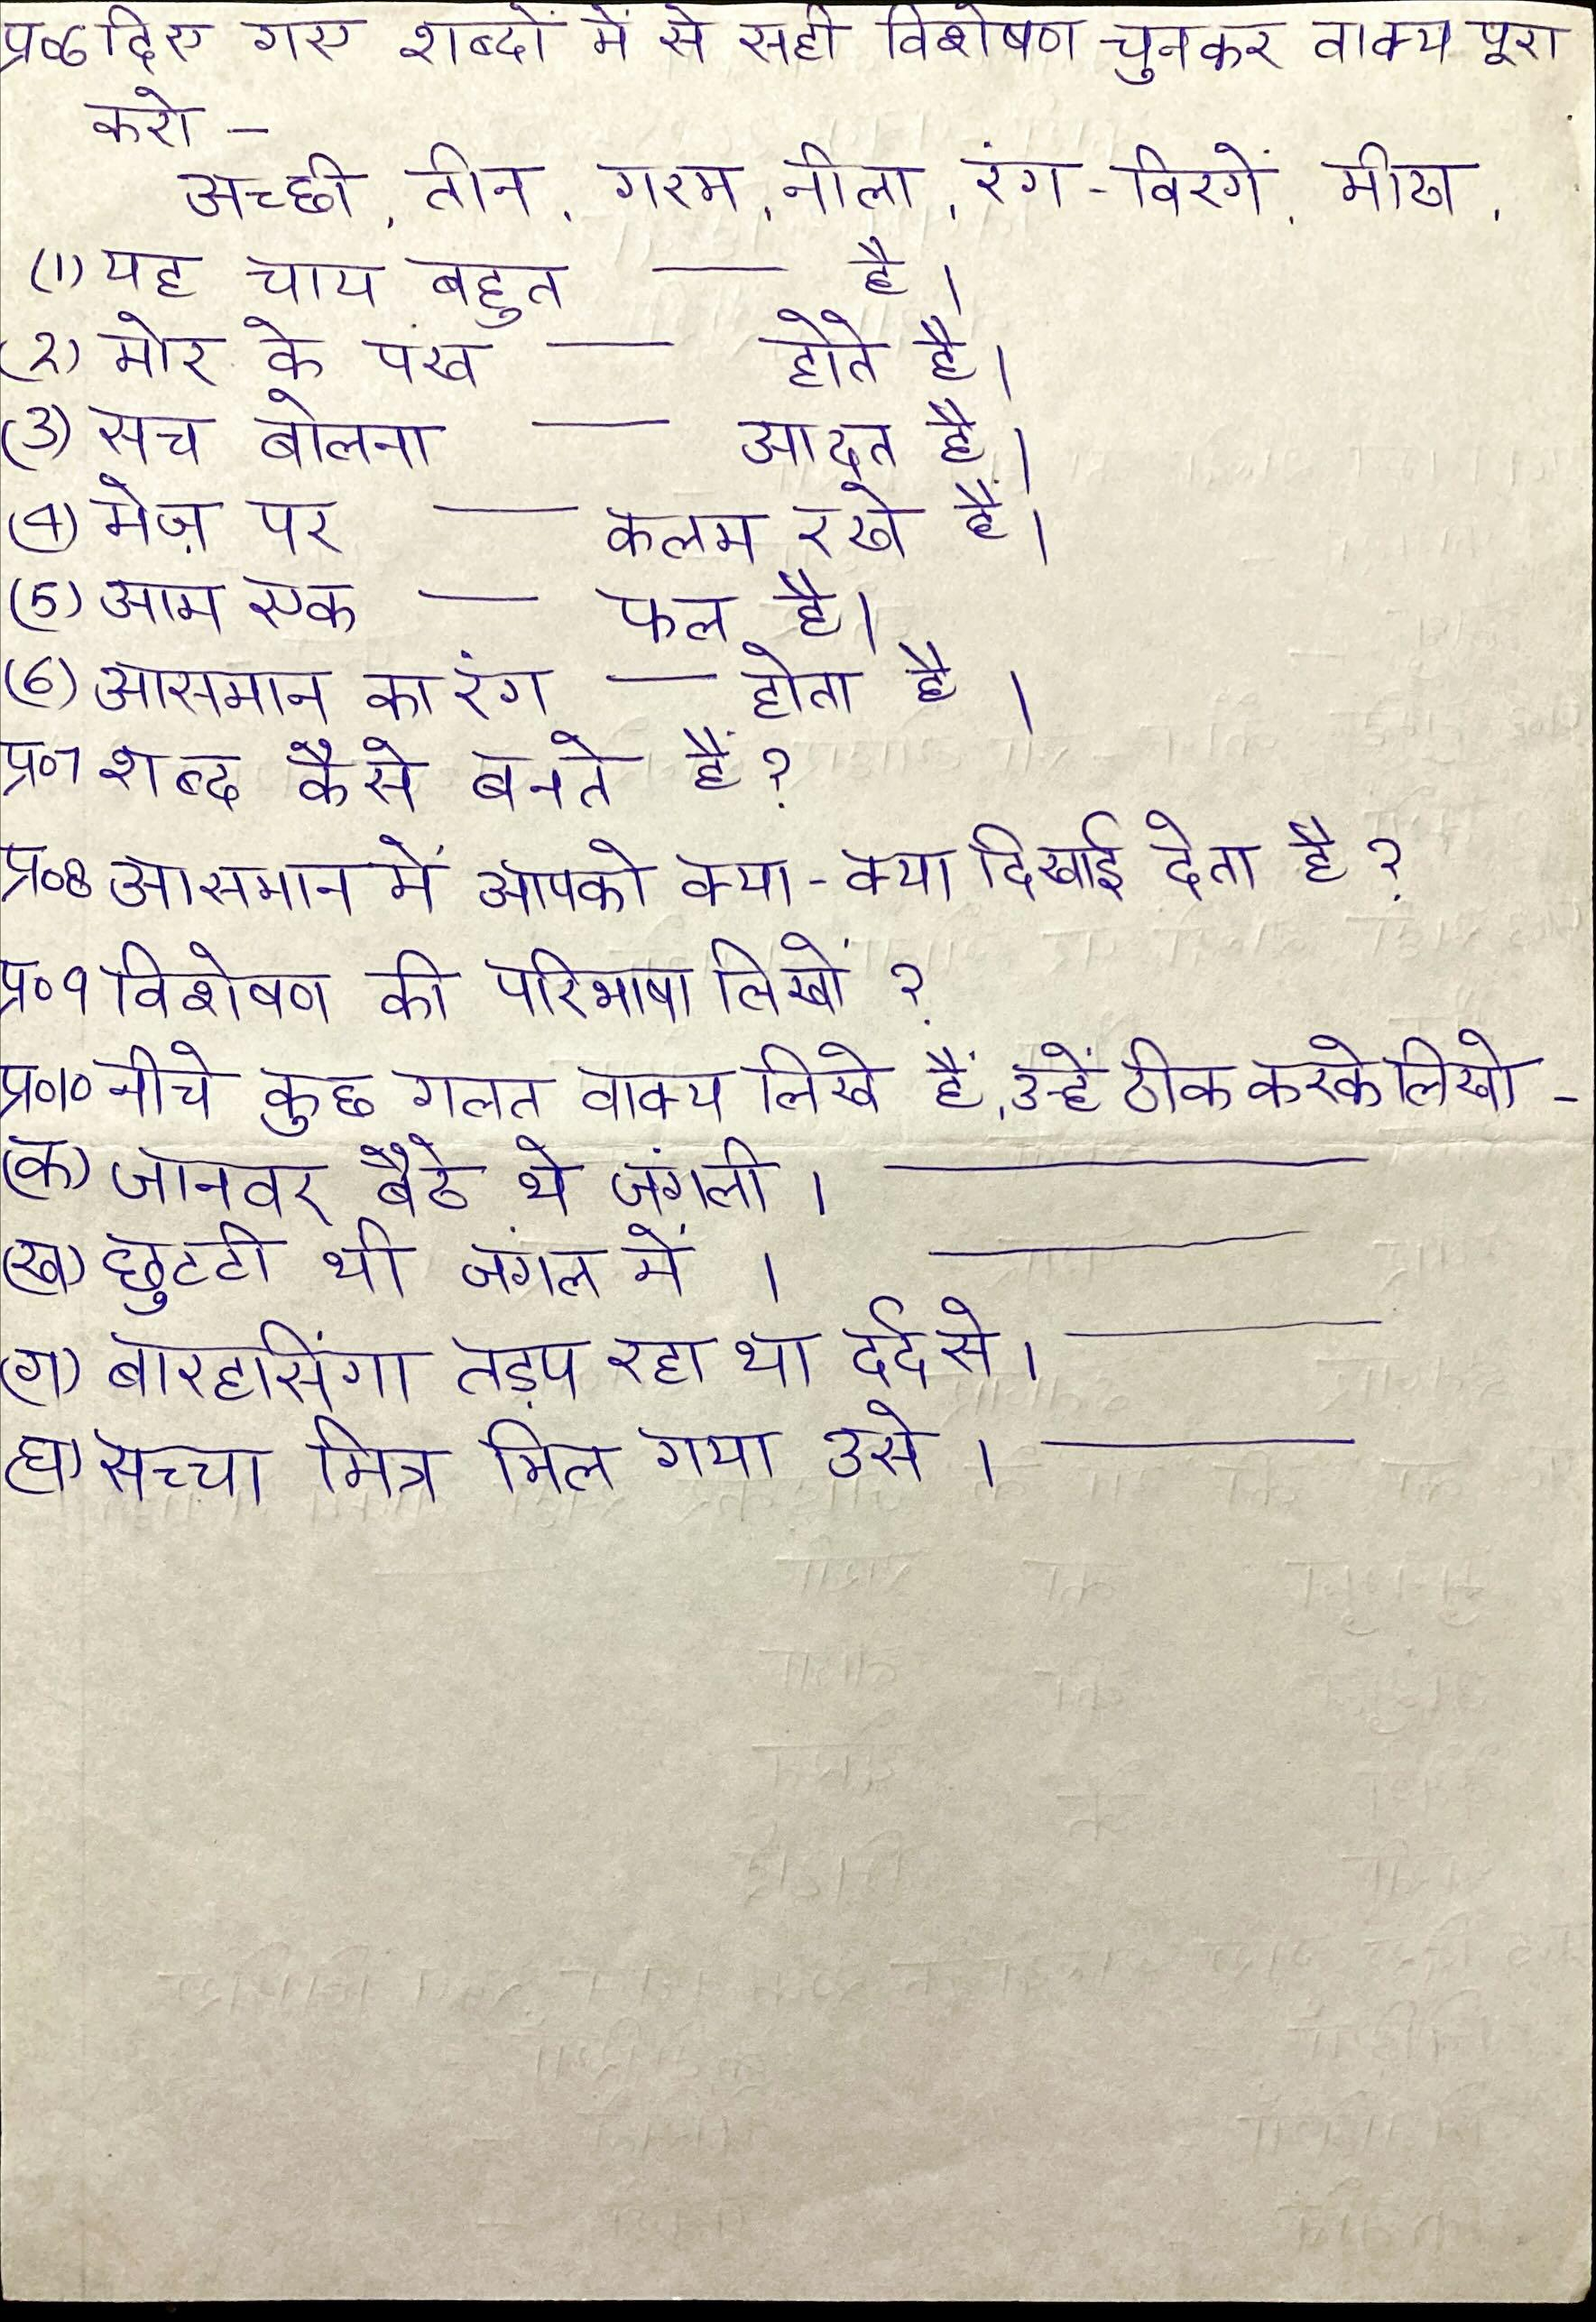 प्र०6 दिए गए शब्दों में से सही विशेषण चुनकर वाक्य पूरा
करो -
अच्छी, तीन, गरम, नीला, रंग-विरगें, मीठा,
(1) यह चाय बहुत — है।
(2) मोर के पंख — होते है।
(3) सच बोलना — आदत है।
(4) मेज़ पर — कलम रखे हैं।
(5) आम एक — फल है।
(6) आसमान का रंग — होता है।
प्र०7 शब्द कैसे बनते हैं?
प्र०8 आसमान में आपको क्या-क्या दिखाई देता है?
प्र०9 विशेषण की परिभाषा लिखों?
प्र०10 नीचे कुछ गलत वाक्य लिखे हैं, उन्हें ठीक करके लिखो -
(क) जानवर बैठे थे जंगली। ———
(ख) छुटटी थी जंगल में। ———
(ग) बारहसिंगा तड़प रहा था दर्द से। ———
(घ) सच्चा मित्र मिल गया उसे। ———